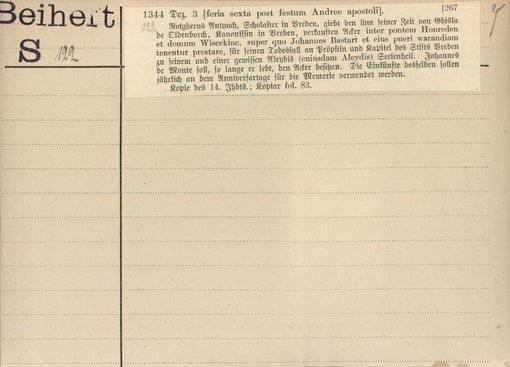 Beiheft
S 122
1344 Dez. 3 [feria sexta post festum Andree apostoli]. [267
Rotgherus Antynch, Scholaster in Vreden, giebt den ihm seiner Zeit von Ghisla
de Oldenborch, Kanonissin in Vreden, verkauften Acker inter pontem Honreden
et domum Wiscekinc, super quo Johannes Bastart et eius pueri warandiam
tenentur prestare, für seinen Todesfall an Pröpstin und Kapitel des Stifts Vreden
zu seinem und einer gewissen Aleydis (cuiusdam Aleydis) Seelenheil. Johannes
de Monte soll, so lange er lebt, den Acker besitzen. Die Einkünfte desselben sollen
jährlich an dem Anniversartage für die Memorie verwendet werden.
Kopie des 14. Jhdts.; Kopiar fol. 83.